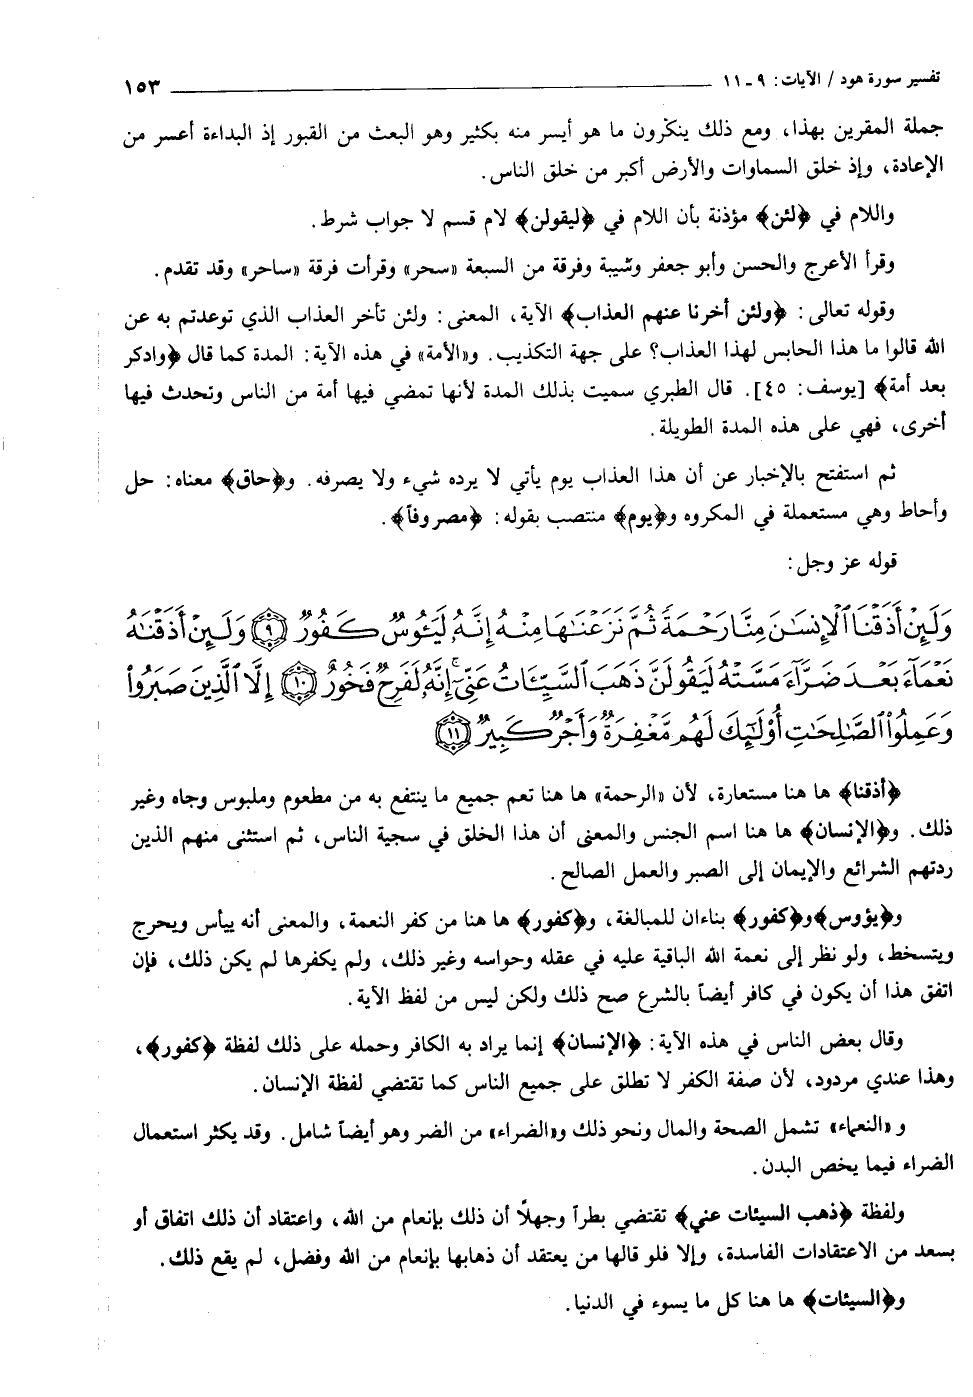 تفسير سورة هود / الآيات: ٩ ـ ١١ ١٥٣
جملة المقرين بهذا، ومع ذلك ينكرون ما هو أيسر منه بكثير وهو البعث من القبور إذ البداءة أعسر من
الإعادة، وإذ خلق السماوات والأرض أكبر من خلق الناس.
واللام في ﴿لئن﴾ مؤذنة بأن اللام في ﴿ليقولن﴾ لام قسم لا جواب شرط.
وقرأ الأعرج والحسن وأبو جعفر وشيبة وفرقة من السبعة «سحر» وقرأت فرقة «ساحر» وقد تقدم.
وقوله تعالى: ﴿ولئن أخرنا عنهم العذاب﴾ الآية، المعنى: ولئن تأخر العذاب الذي توعدتم به عن
الله قالوا ما هذا الحابس لهذا العذاب؟ على جهة التكذيب. و«الأمة» في هذه الآية: المدة كما قال ﴿وادكر
بعد أمة﴾ [يوسف: ٤٥]. قال الطبري سميت بذلك المدة لأنها تمضي فيها أمة من الناس وتحدث فيها
أخرى، فهي على هذه المدة الطويلة.
ثم استفتح بالإخبار عن أن هذا العذاب يوم يأتي لا يرده شيء ولا يصرفه. و﴿حاق﴾ معناه: حل
وأحاط وهي مستعملة في المكروه و﴿يوم﴾ منتصب بقوله: ﴿مصروفاً﴾.
قوله عز وجل:
وَلَئِنْ أَذَقْنَا ٱلْإِنسَٰنَ مِنَّا رَحْمَةً ثُمَّ نَزَعْنَٰهَا مِنْهُ إِنَّهُۥ لَيَـُٔوسٌ كَفُورٌ ﴿٩﴾ وَلَئِنْ أَذَقْنَٰهُ
نَعْمَآءَ بَعْدَ ضَرَّآءَ مَسَّتْهُ لَيَقُولَنَّ ذَهَبَ ٱلسَّيِّـَٔاتُ عَنِّىٓ إِنَّهُۥ لَفَرِحٌ فَخُورٌ ﴿١٠﴾ إِلَّا ٱلَّذِينَ صَبَرُوا۟
وَعَمِلُوا۟ ٱلصَّٰلِحَٰتِ أُو۟لَٰٓئِكَ لَهُم مَّغْفِرَةٌ وَأَجْرٌ كَبِيرٌ ﴿١١﴾
﴿أذقنا﴾ ها هنا مستعارة، لأن «الرحمة» ها هنا تعم جميع ما ينتفع به من مطعوم وملبوس وجاه وغير
ذلك. و﴿الإنسان﴾ ها هنا اسم الجنس والمعنى أن هذا الخلق في سجية الناس، ثم استثنى منهم الذين
ردتهم الشرائع والإيمان إلى الصبر والعمل الصالح.
و﴿يؤوس﴾ و﴿كفور﴾ بناءان للمبالغة، و﴿كفور﴾ ها هنا من كفر النعمة، والمعنى أنه ييأس ويحرج
ويتسخط، ولو نظر إلى نعمة الله الباقية عليه في عقله وحواسه وغير ذلك، ولم يكفرها لم يكن ذلك، فإن
اتفق هذا أن يكون في كافر أيضاً بالشرع صح ذلك ولكن ليس من لفظ الآية.
وقال بعض الناس في هذه الآية: ﴿الإنسان﴾ إنما يراد به الكافر وحمله على ذلك لفظة ﴿كفور﴾،
وهذا عندي مردود، لأن صفة الكفر لا تطلق على جميع الناس كما تقتضي لفظة الإنسان.
و «النعماء» تشمل الصحة والمال ونحو ذلك و«الضراء» من الضر وهو أيضاً شامل. وقد يكثر استعمال
الضراء فيما يخص البدن.
ولفظة ﴿ذهب السيئات عني﴾ تقتضي بطراً وجهلاً أن ذلك بإنعام من الله، واعتقاد أن ذلك اتفاق أو
بسعد من الاعتقادات الفاسدة، وإلا فلو قالها من يعتقد أن ذهابها بإنعام من الله وفضل، لم يقع ذلك.
و﴿السيئات﴾ ها هنا كل ما يسوء في الدنيا.